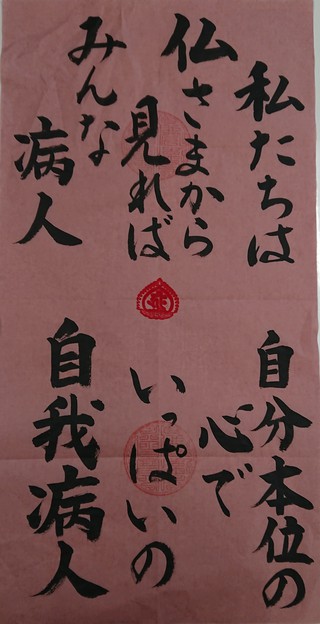 私たちは
仏さまから
見れば
みんな
病人
自分本位の
心で
いっぱいの
自我病人